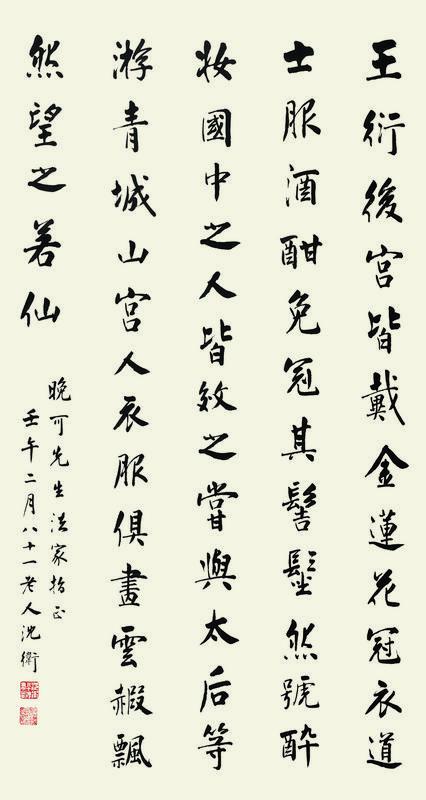 王衍後宮皆戴金蓮花冠衣道
士服酒酣免冠其髻髽然號醉
妝國中之人皆效之嘗與太后等
游青城山宮人衣服俱畫雲赮飄
然望之若仙
晚可先生法家指正
壬午二月八十一老人沈衛